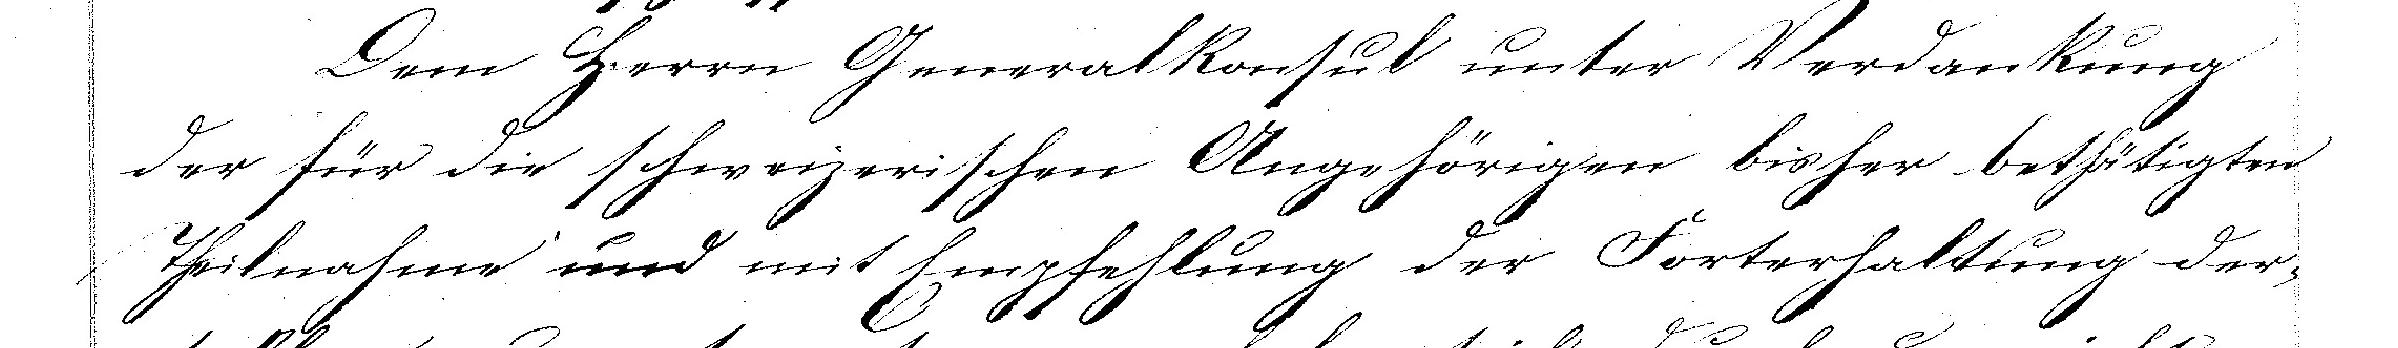 Dem Herrn Generalkonsul unter Verdankung
der für die schweizerischen Angehörigen bisher bethätigten
Theilnahme und mit Empfehlung der Forterhaltung der-